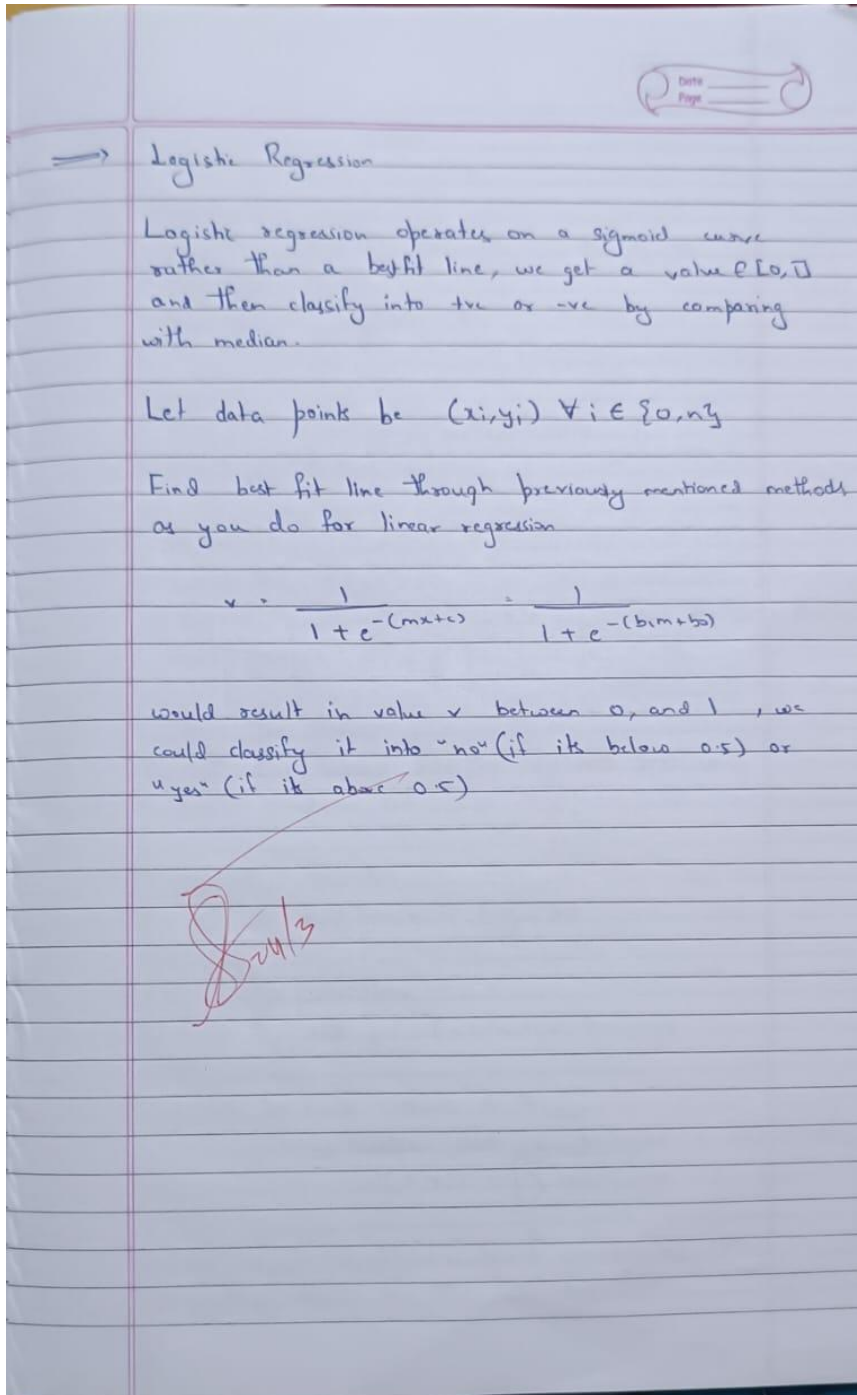 Date
Page
⇒ Logistic Regression
Logistic regression operates on a sigmoid curve
rather than a bestfit line, we get a value ∈ [0,1]
and then classify into +ve or -ve by comparing
with median.
Let data points be (xi, yi) ∀ i ∈ {0, n}
Find best fit line through previously mentioned methods
as you do for linear regression
v = 1 / (1 + e^-(mx+c)) = 1 / (1 + e^-(b1m+b0))
would result in value v between 0, and 1, we
could classify it into "no" (if its below 0.5) or
"yes" (if its above 0.5)